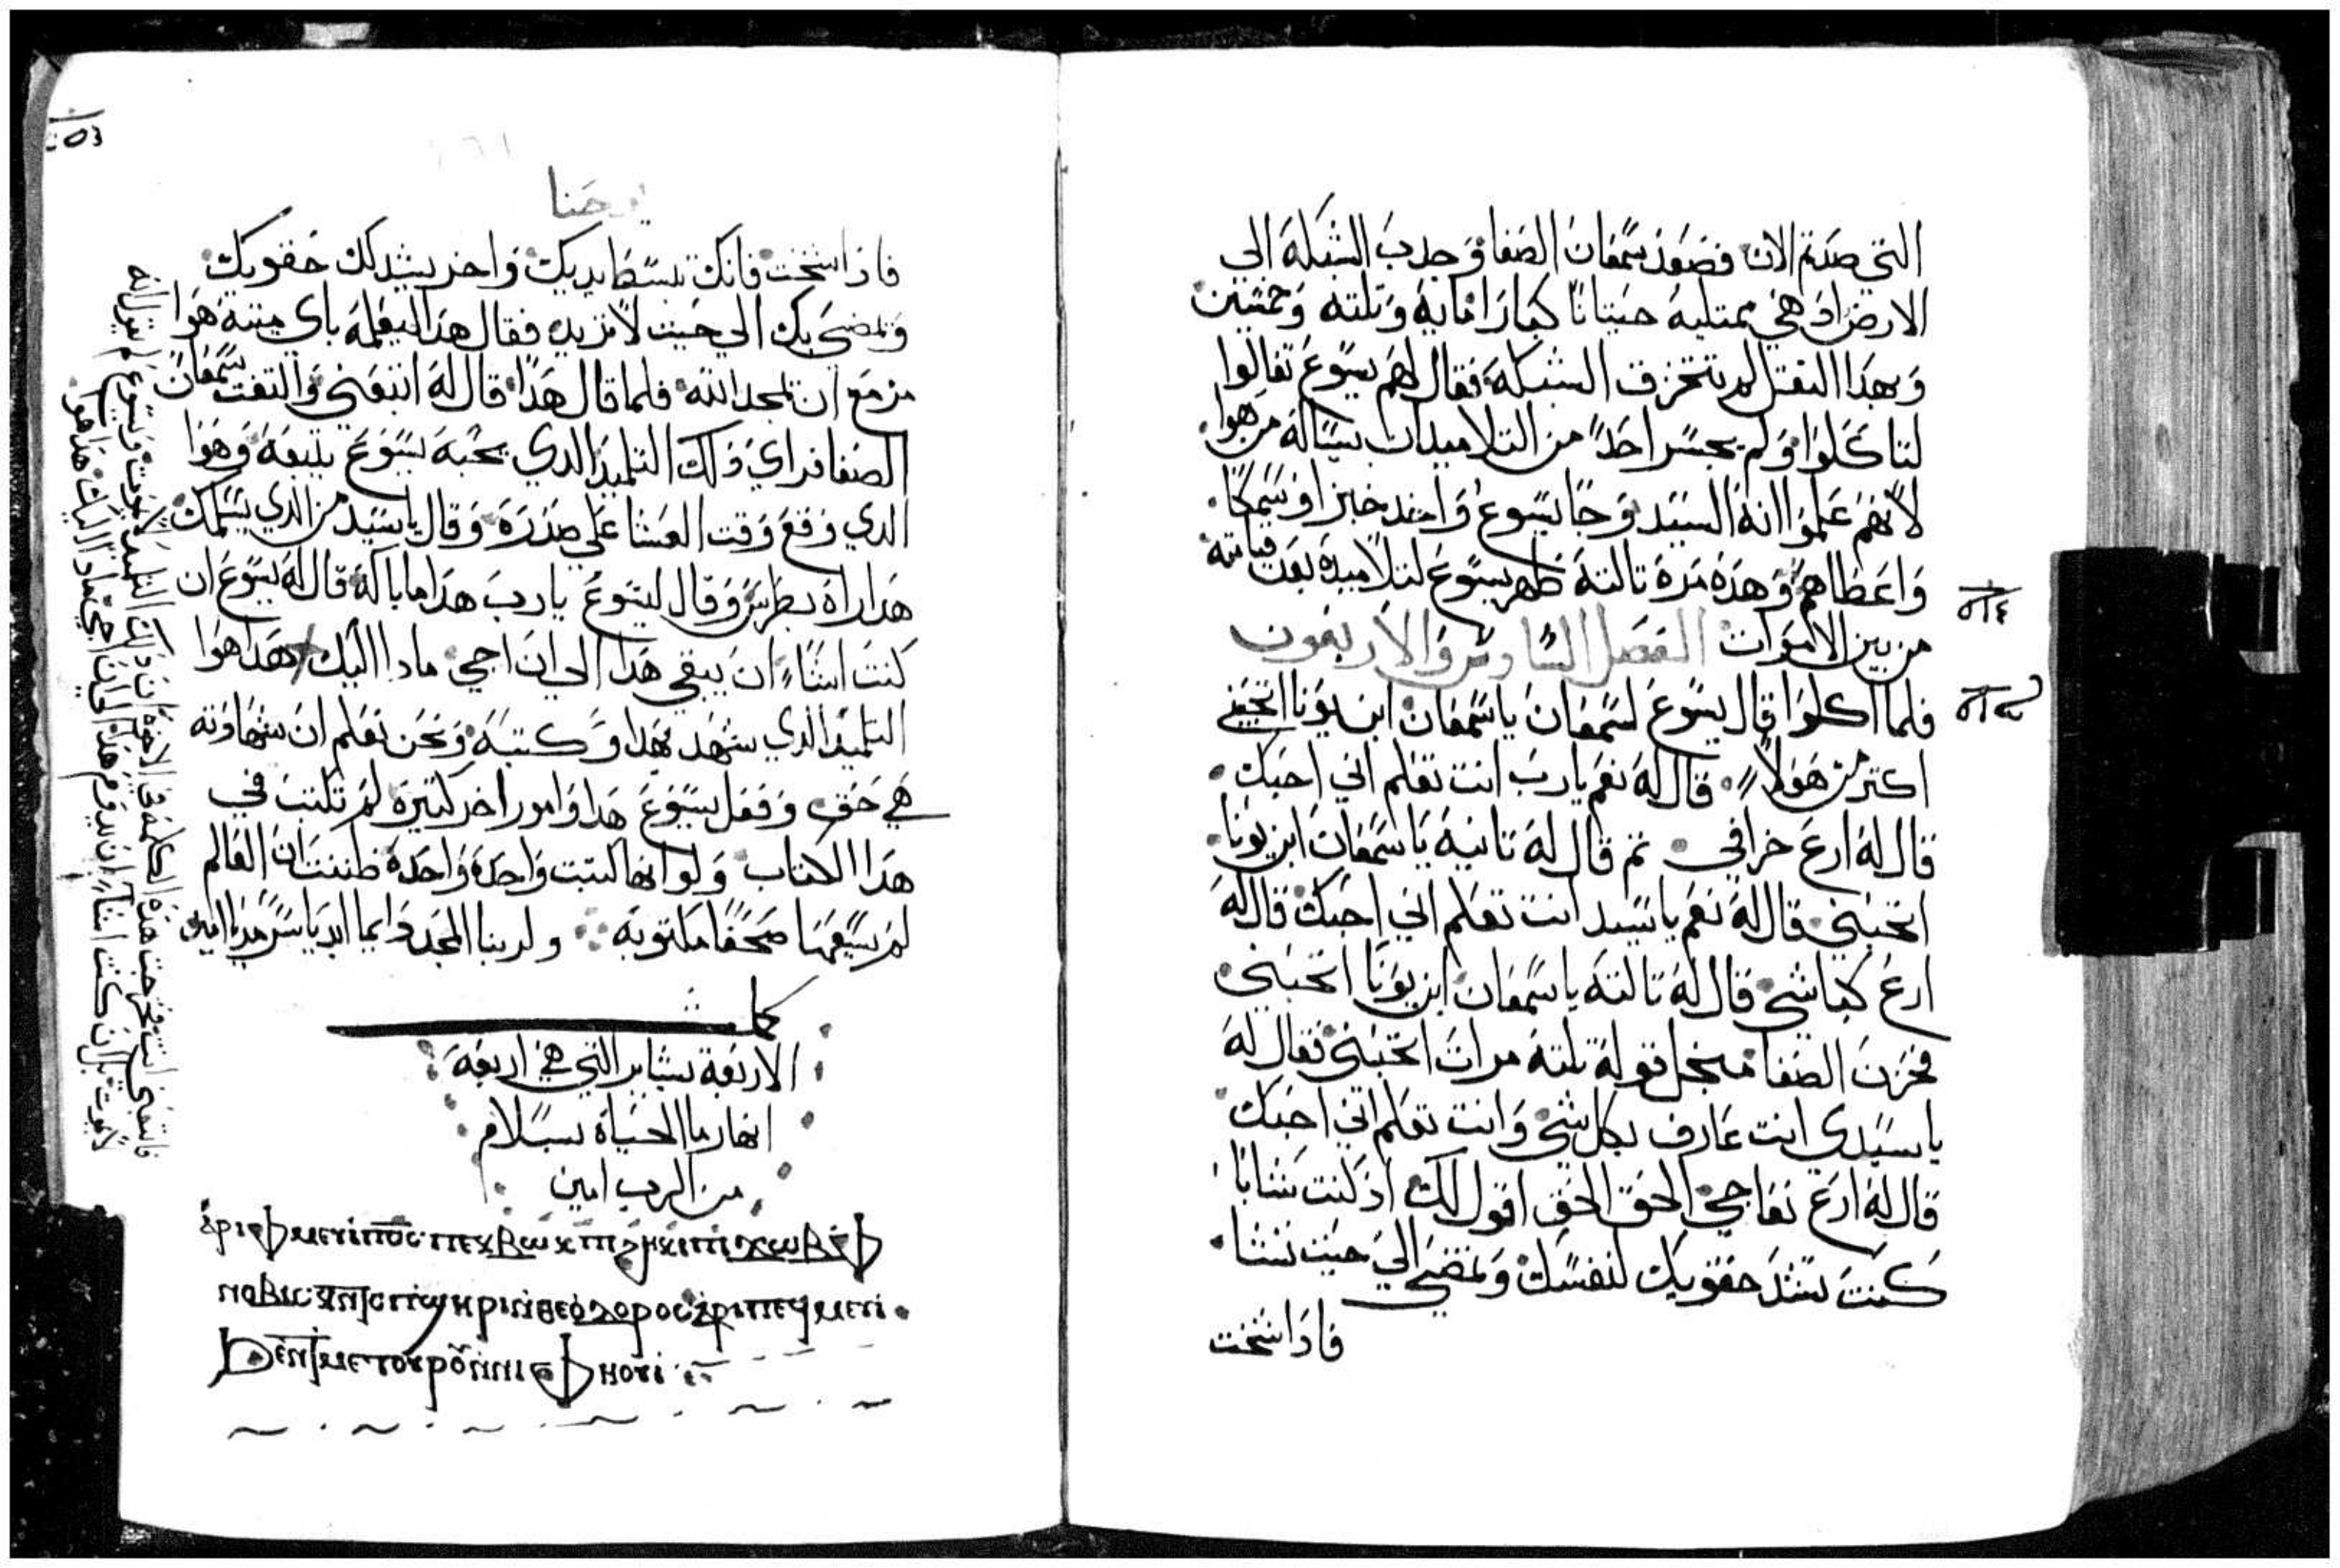 التي صدتم الان فصعد سمعان الصفا وجدب الشبكة الي
الارض اد هي ممتلية حيتانا كبارا ماية وتلتة وخمسين
وبهدا التقل لم تتخرق الشبكة فقال لهم يسوع تعالوا
لتاكلوا ولم يجسر احد من التلاميد ان يساله من هوا
لانهم علموا انه السيد وجا يسوع واخد خبزا وسمكا
واعطاهم وهده مرة تالتة ظهر يسوع لتلاميده بعد قيامته
من بين الاموات الفصل السادس والاربعون
فلما اكلوا قال يسوع لسمعان ياسمعان ابن يونا اتحبني
اكتر من هولاء قال له نعم يارب انت تعلم اني احبك
قال له ارع خرافي تم قال له تانية ياسمعان ابن يونا
اتحبني قال له نعم ياسيد انت تعلم اني احبك قال له
ارع كباشي قال له تالتة ياسمعان ابن يونا اتحبني
فحزن الصفا من اجل قوله تلتة مرات اتحبني فقال له
ياسيدي انت عارف بكل شي وانت تعلم اني احبك
قال له ارع نعاجي الحق الحق اقول لك اد كنت شابا
كنت تشد حقويك لنفسك وتمضي الي حيت تشا
فاداشخت
يوحنا
فاداشخت فانك تبسط ايديك واخر يشد لك حقويك
وتمضي بك الي حيت لاتريد فقال هدا ليعلمه باي ميتة هوا
مزمع ان يمجد الله فلما قال هدا قال له اتبعني والتفت سمعان
الصفا فراي دلك التلميد الدي يحبه يسوع يتبعه وهوا
الدي وقع وقت العشا علي صدره وقال ياسيد من الدي يسلمك
هدا راه بطرس وقال ليسوع يارب هدا ما باله قال له يسوع ان
كنت اشاء ان يبقي هدا الي ان اجي مادا اليك هدا هوا
التلميد الدي شهد بهدا وكتبه ونحن نعلم ان شهادته
هي حق وفعل يسوع هدا وامور اخر كتيرة لم تكتب في
هدا الكتاب ولو انها كتبت واحدة واحدة ظننت ان العالم
لم يسعها صحفا مكتوبة ولربنا المجد دايما ابديا سرمديا امين
كملت
الاربعة بشاير التي هي اربعة
انهار ما الحياة بسلام
من الرب امين
فاتبعني انت فخرجت هده الكلمة في الاخوة ان دلك التلميد لا يموت ويسوع لم يقل انه
لا يموت بل ان كنت اشاء ان يدوم هدا الي ان اجي مادا اليك هدا هوا